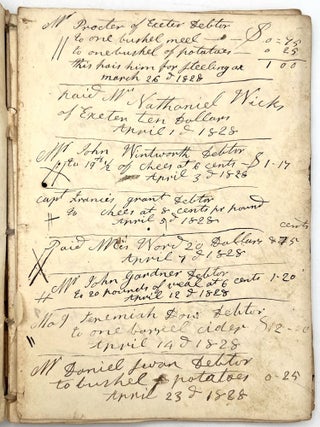 Mr Procter of Exeter Debtor $
to one bushel meel — 0=75
to one bushel of potatoes — 0 25
this pais him for steeling ax 1 00
march 26 d 1828
paid Mrs Nathaniel Wicks
of Exeter ten Dollars
April 1 d 1828
Mr John Wintworth Debtor
to 19 ½ of chees at 6 cents — $1-17
April 3 d 1828
capt Francis grant Debtor
to chees at 8 cents per pound
April 5 d 1828
cents
Paid 20 Dollars &75
April 7 d 1828
Mr John Gardner Debtor
to 20 pounds of veal at 6 cents 1-20
April 12 d 1828
Jeremiah Dow Debtor
to one barreel cider $2-00
April 14 d 1828
Mr Daniel Swan Debtor
to bushel potatoes 0-25
April 23 d 1828